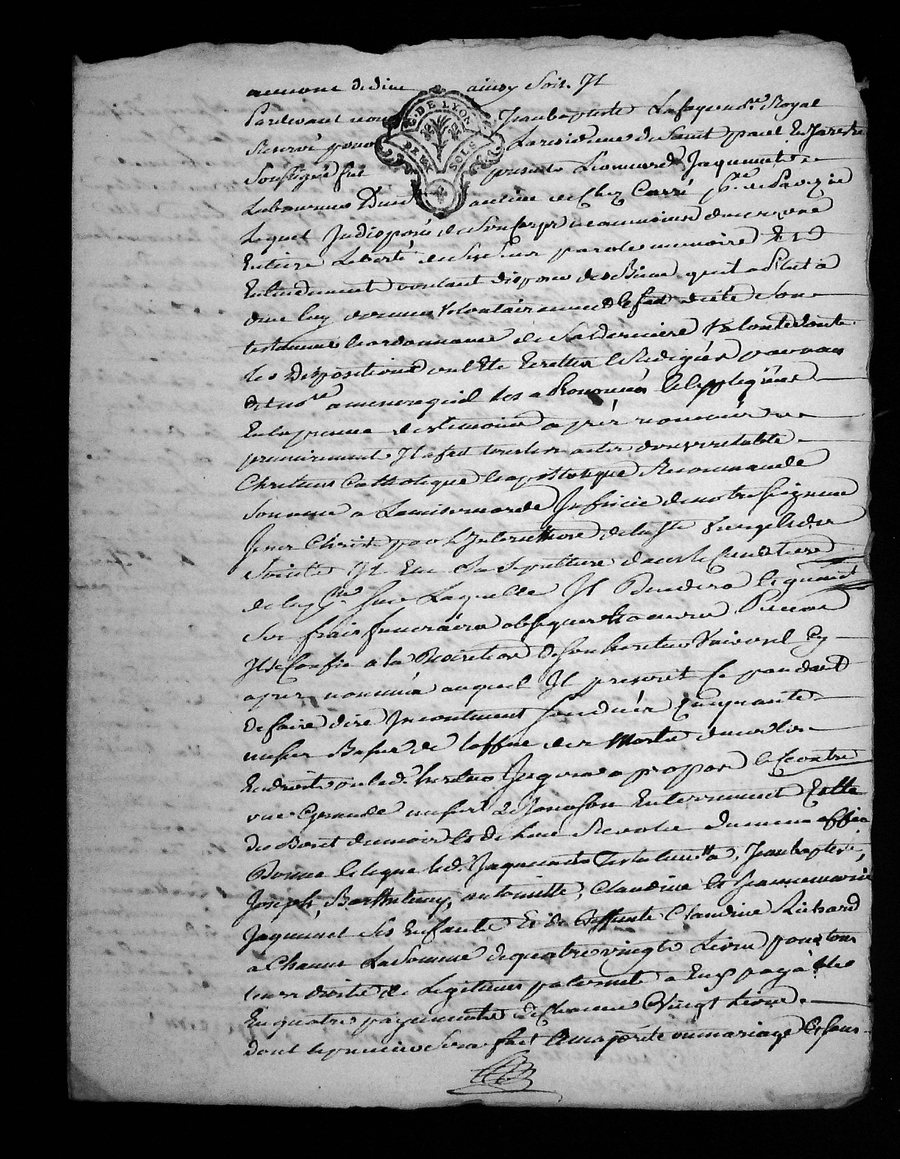 au nom de dieu ainsy Soit Il
G. DE LYON
DEUX SOLS
Pardevant nous Jean baptiste Lafay nore Royal
Reservé pour La residence de Saint paul En Jarêt
Soussigné fut present Leonnard Jaquemet
Laboureur du de Chez Carré psse de
Lequel Indisposé de Son Corps neanmoins dans une
Entiere Liberté de Ses Sens parole memoire Et
Entendement voulant disposer des Biens quil a Plut à
dieu luy donner volontairement a fait dicté Son
testament Et ordonnance de Sa derniere volonté dont
les Dispositions ont Eté Ecrittes Et Redigées par nous
dit nore a mesure quil les a Prononcées Et Expliquées
En la presence des temoins après nommés
premierement Il a fait tous les actes dun veritable
Chretien Catholique Et apostolique Recommandé
Son ame a La misericorde Infinie de notre Seigneur
Jesus Christ par L'Intercession de la Ste vierge Et des
Saints Il Elu Sa Sepulture dans le Cimetiere
de lad. psse Sur Laquelle Il Decedera Et quand
Ses frais funeraires obseques Et oeuvres Pieuses
Il Se Confie à la Discretion de Son heritier Universel Cy
apres nommé auquel Il prescrit Ce pendant
de faire dire Incontinent Son décès Cinquante
messes Basses de loffice des Morts dans les
Endroits ou led. heritier Jugera a propos Et Contre
une Grande messe de Son Enterrement Cette
du Bout du mois Et de Lan Revolu du meme office
Donne Et legue led. Jaquemet Testateur à Jean baptiste,
Joseph, Barthelemy, antoinette, Claudine Et Jeanne marie
Jaquemet Ses Enfants Et de deffunte Claudine Richard
a Chacun La Somme de quatre vingts Livres pour tous
Leurs droits de Legitime paternelle a Eux payables
En quatre payements de Chacun Vingt Livres
dont le premier Sera fait Et majorité ou mariage Et Sans